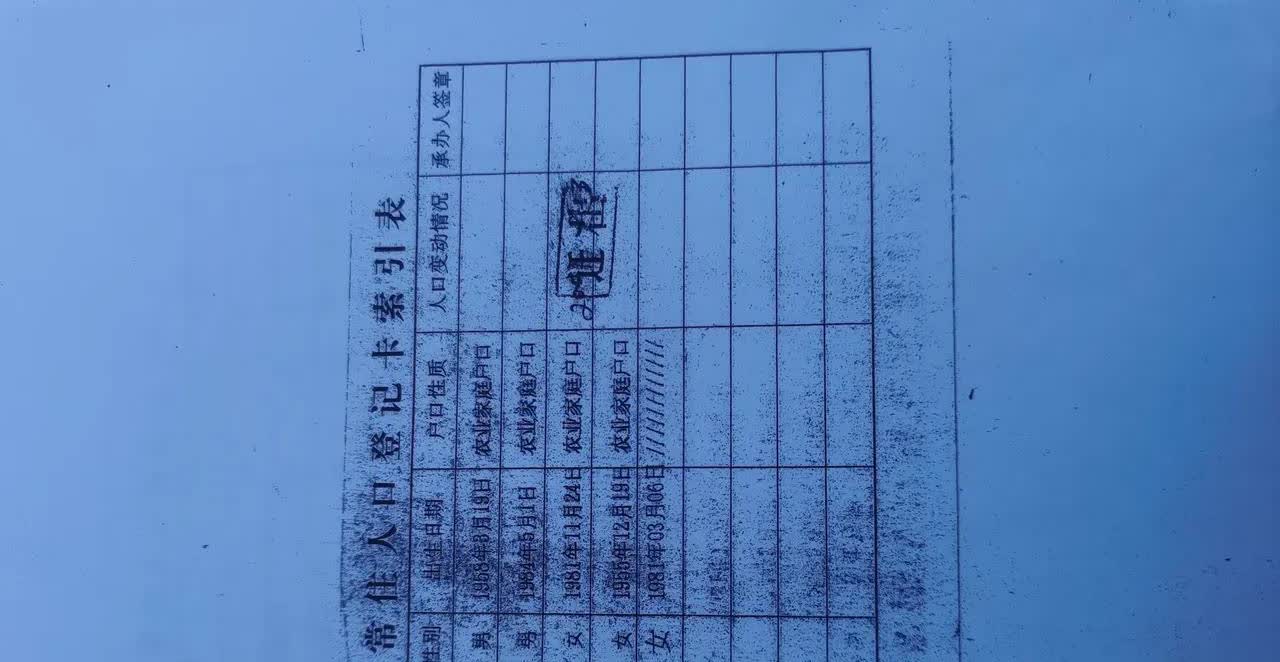 常住人口登记卡索引表
性别 出生日期 户口性质 人口变动情况 承办人签章
男 1958年3月19日 农业家庭户口
男 1984年5月1日 农业家庭户口
女 1981年11月24日 农业家庭户口
女 1956年12月19日 农业家庭户口
女 1981年03月06日 ///////////